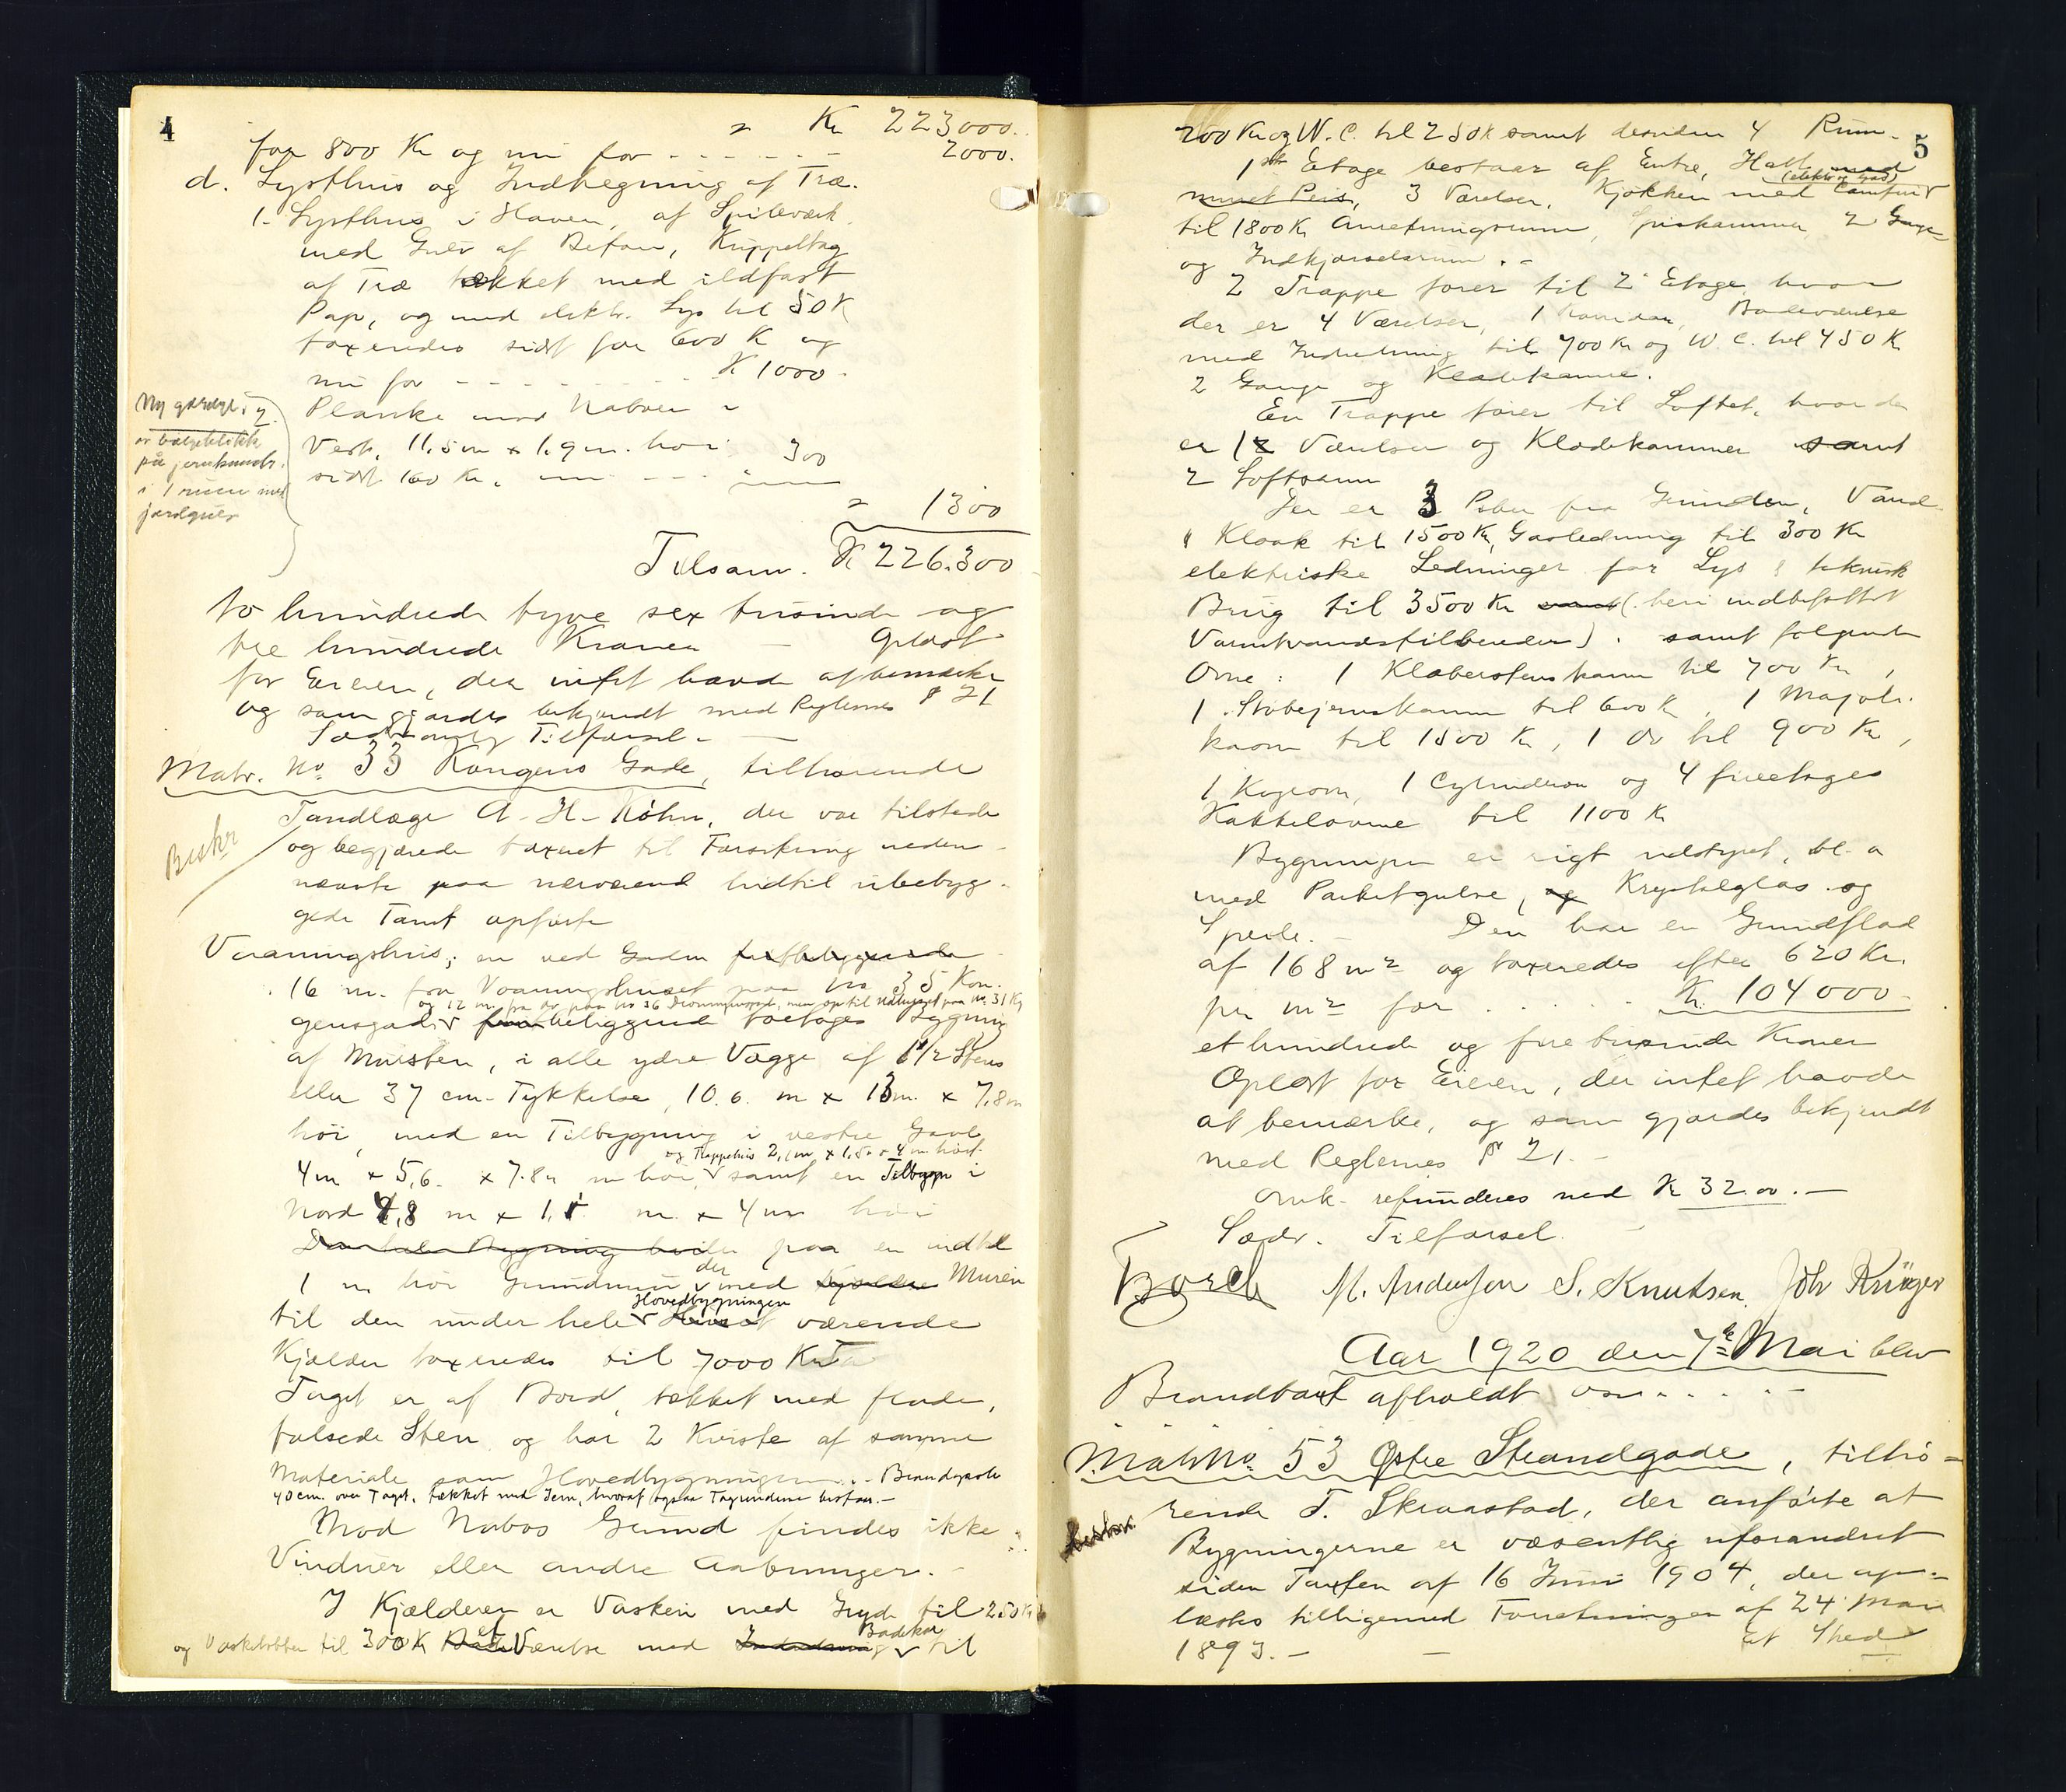 4
" Kr 223000.
for 800 Kr og nu for - - - - - - 2000.
d. Lysthus og Indhegning af Træ.
1. Lysthus i Haven, af Spileværk
med Gulv af Beton, Kuppeltag
af Træ tækket med ildfast
Pap, og med elektr. Lys til 50 K
taxeredes sidst for 600 K og
nu for - - - - - - - K 1000.
Planke mod Naboen i
Vest, 11,5 m x 1.9 m. høi
sidst 160 Kr. nu - - - 300
Ny gjærdet i
er bølgeblikk
på jernkonstr.
i 1 rum med
" 1300
Tilsam. K 226.300
to hundrede tyve sex tusinde og
tre hundrede Kroner — Oplæst
for Eieren, der intet havde at bemærke
og som gjordes bekjendt med Reglernes § 21
Sædvanlig Tilførsel. —
Matr. No. 33 Kongens Gade, tilhørende
Tandlæge A. H. Køhn, der var tilstede
Beskr
og begjærede taxeret til Forsikring neden-
nævnte paa nærværende hidtil ubebyg-
gede Tomt opførte
Vaaningshus; en ved Gaden
16 m. fra Vaaningshuset paa No 35 Kon-
og 12 m. fra do. paa No 36 Dronningensgd., men op til Udhuset paa No. 31 Kg
gensgade beliggende toetages Bygning
af Mursten, i alle ydre Vægge af 1 1/2 Stens
eller 37 cm. Tykkelse, 10.6. m x 13 m. x 7.8 m
høi, med en Tilbygning i vestre Gavl
og Trappehus 2,1 m x 1,50 x 4 m høit.
4 m x 5,6. x 7.8 m høi, samt en Tilbygn i
Nord 4,8 m x 1,1 m. x 4 m høi
Den hele Bygning hviler paa en indtil
1 m høi Grundmur der med Kjælder Muren
Hovedbygningen
til den under hele Huset værende
Kjælder taxeredes til 7000 Kr
Taget er af Bord, tækket med flade,
falsede Sten og har 2 Kviste af samme
Materiale som Hovedbygningen. - Brandgavle
40 cm. over Taget, tækket med Jern, hvoraf ogsaa Tagrenderne bestaar.—
Mod Nabos Grund findes ikke
Vinduer eller andre Aabninger. -
I Kjælderen er Vaskeri med Gryde til 250 Kr
Badekar
og Vaskebøtter til 300 K Bade Værelse med Indretning til
5
200 Kr og W.C. til 250 K samt desuden 4 Rum.
1ste Etage bestaar af Entre, Hall med
(elektr og Gas)
muret Peis, 3 Værelser, Kjøkken med Komfur
til 1800 Kr Anretningsrum, Spiskammer 2 Gange
og Indkjørselsrum. -
2 Trappe fører til 2. Etage, hvor
der er 4 Værelser, 1 Korridor, Badeværelse
med Indretning til 700 Kr og W.C. til 450 Kr
2 Gange og Klædekamre.
En Trappe fører til Loftet, hvor der
er 1 Værelser og Klædekammer samt
2 Loftsrum
Der er 3 Piber fra Grunden, Vand
& Kloak til 1500 Kr, Gasledning til 300 Kr
elektriske Ledninger for Lys & teknisk
Brug til 3500 Kr samt (heri indbefattet
Varmtvandstilbereder). samt følgende
Ovne: 1 Kleberstenskamin til 700 Kr,
1. Støbejernskamin til 600 Kr, 1 Majoli.
kaovn til 1500 Kr, 1 do til 900 Kr,
1 Kogeovn, 1 Cylinderovn og 4 fireetages
Kakkelovne til 1100 Kr
Bygningen er rigt udstyret, bl. a
med Parketgulve, og Krystalglas og
Speile. — Den har en Grundflade
af 168 m² og taxeredes efter 620 Kr.
pr m² for . . . . . Kr. 104000.
et hundrede og fire tusinde Kroner
Oplæst for Eieren, der intet havde
at bemærke, og som gjordes bekjendt
med Reglernes § 21. —
Omk. refunderes med Kr 32.00. —
Sædv. Tilførsel. —
Borch M. Andersen S. Knutsen. Joh Krüger
Aar 1920 den 7de Mai blev
Brandtaxt afholdt over - - - - -
Matr No. 53 Østre Strandgade, tilhø-
rende T. Skraastad, der anførte at
beskr.
Bygningerne er væsentlig uforandret
siden Taxten af 16 Juni 1904, der op-
læstes tilligemed Forretningen af 24 Mai
1893. — — Et Sted